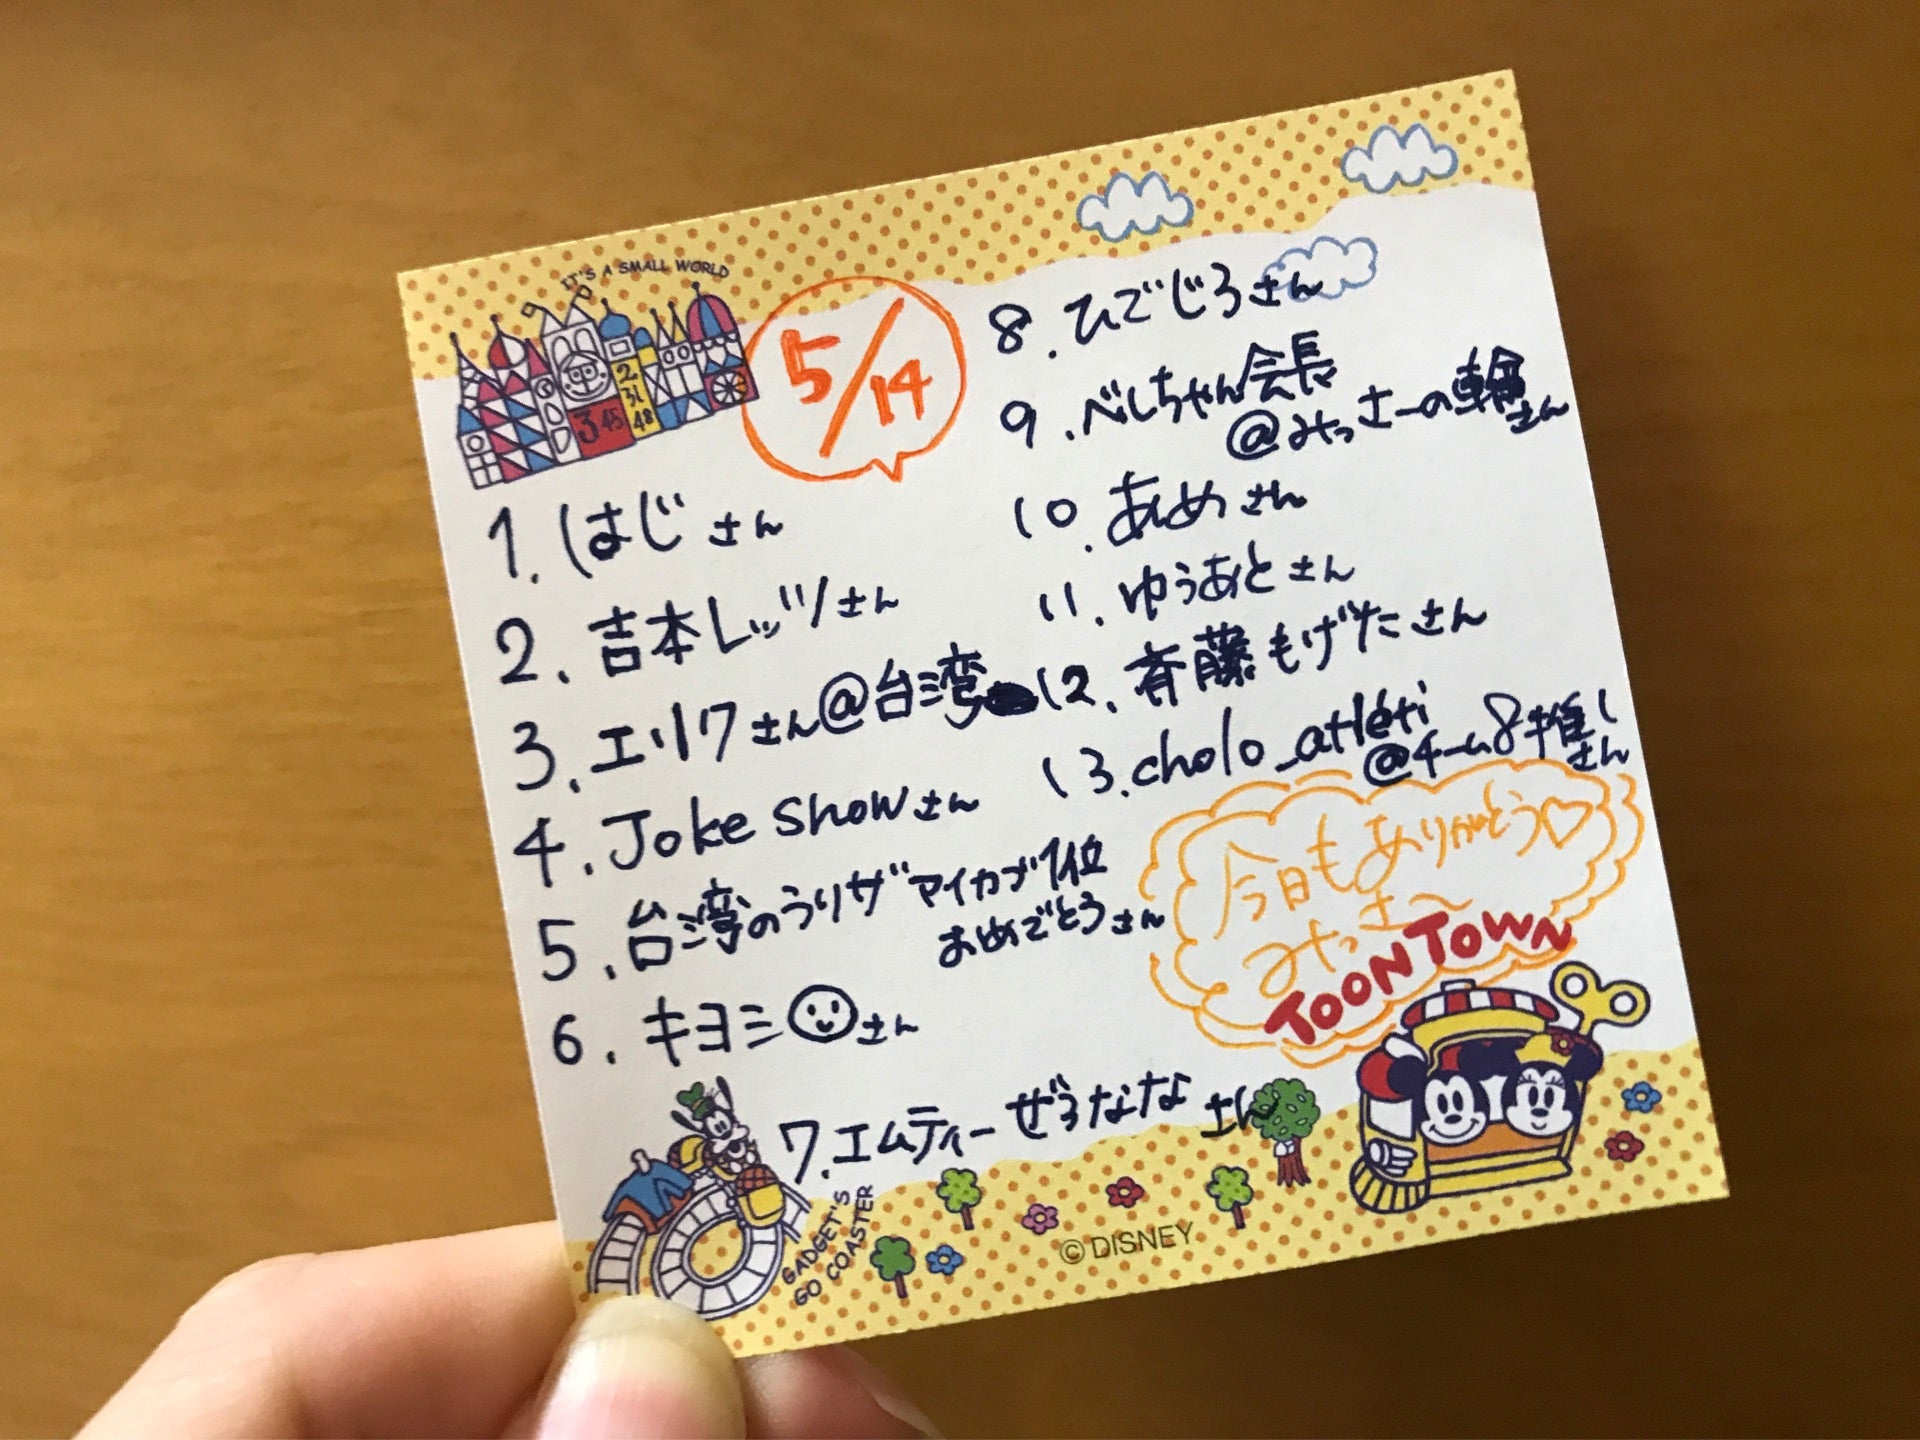 IT'S A SMALL WORLD
5/14
1. はじさん
2. 吉本レッツさん
3. エリクさん@台湾
4. Joke showさん
5. 台湾のうりザ"マイカブ1位
おめでとうさん
6. キヨミさん
7. エムティーぜろななさん
8. ひでじろさん
9. べしちゃん会長
@みっさーの輪さん
10. あめさん
11. ゆうあとさん
12. 斉藤もげたさん
13. cholo_atleti
@チーム8推しさん
今日もありがとう♡
みっさ〜
TOONTOWN
GADGET'S
GO COASTER
©DISNEY